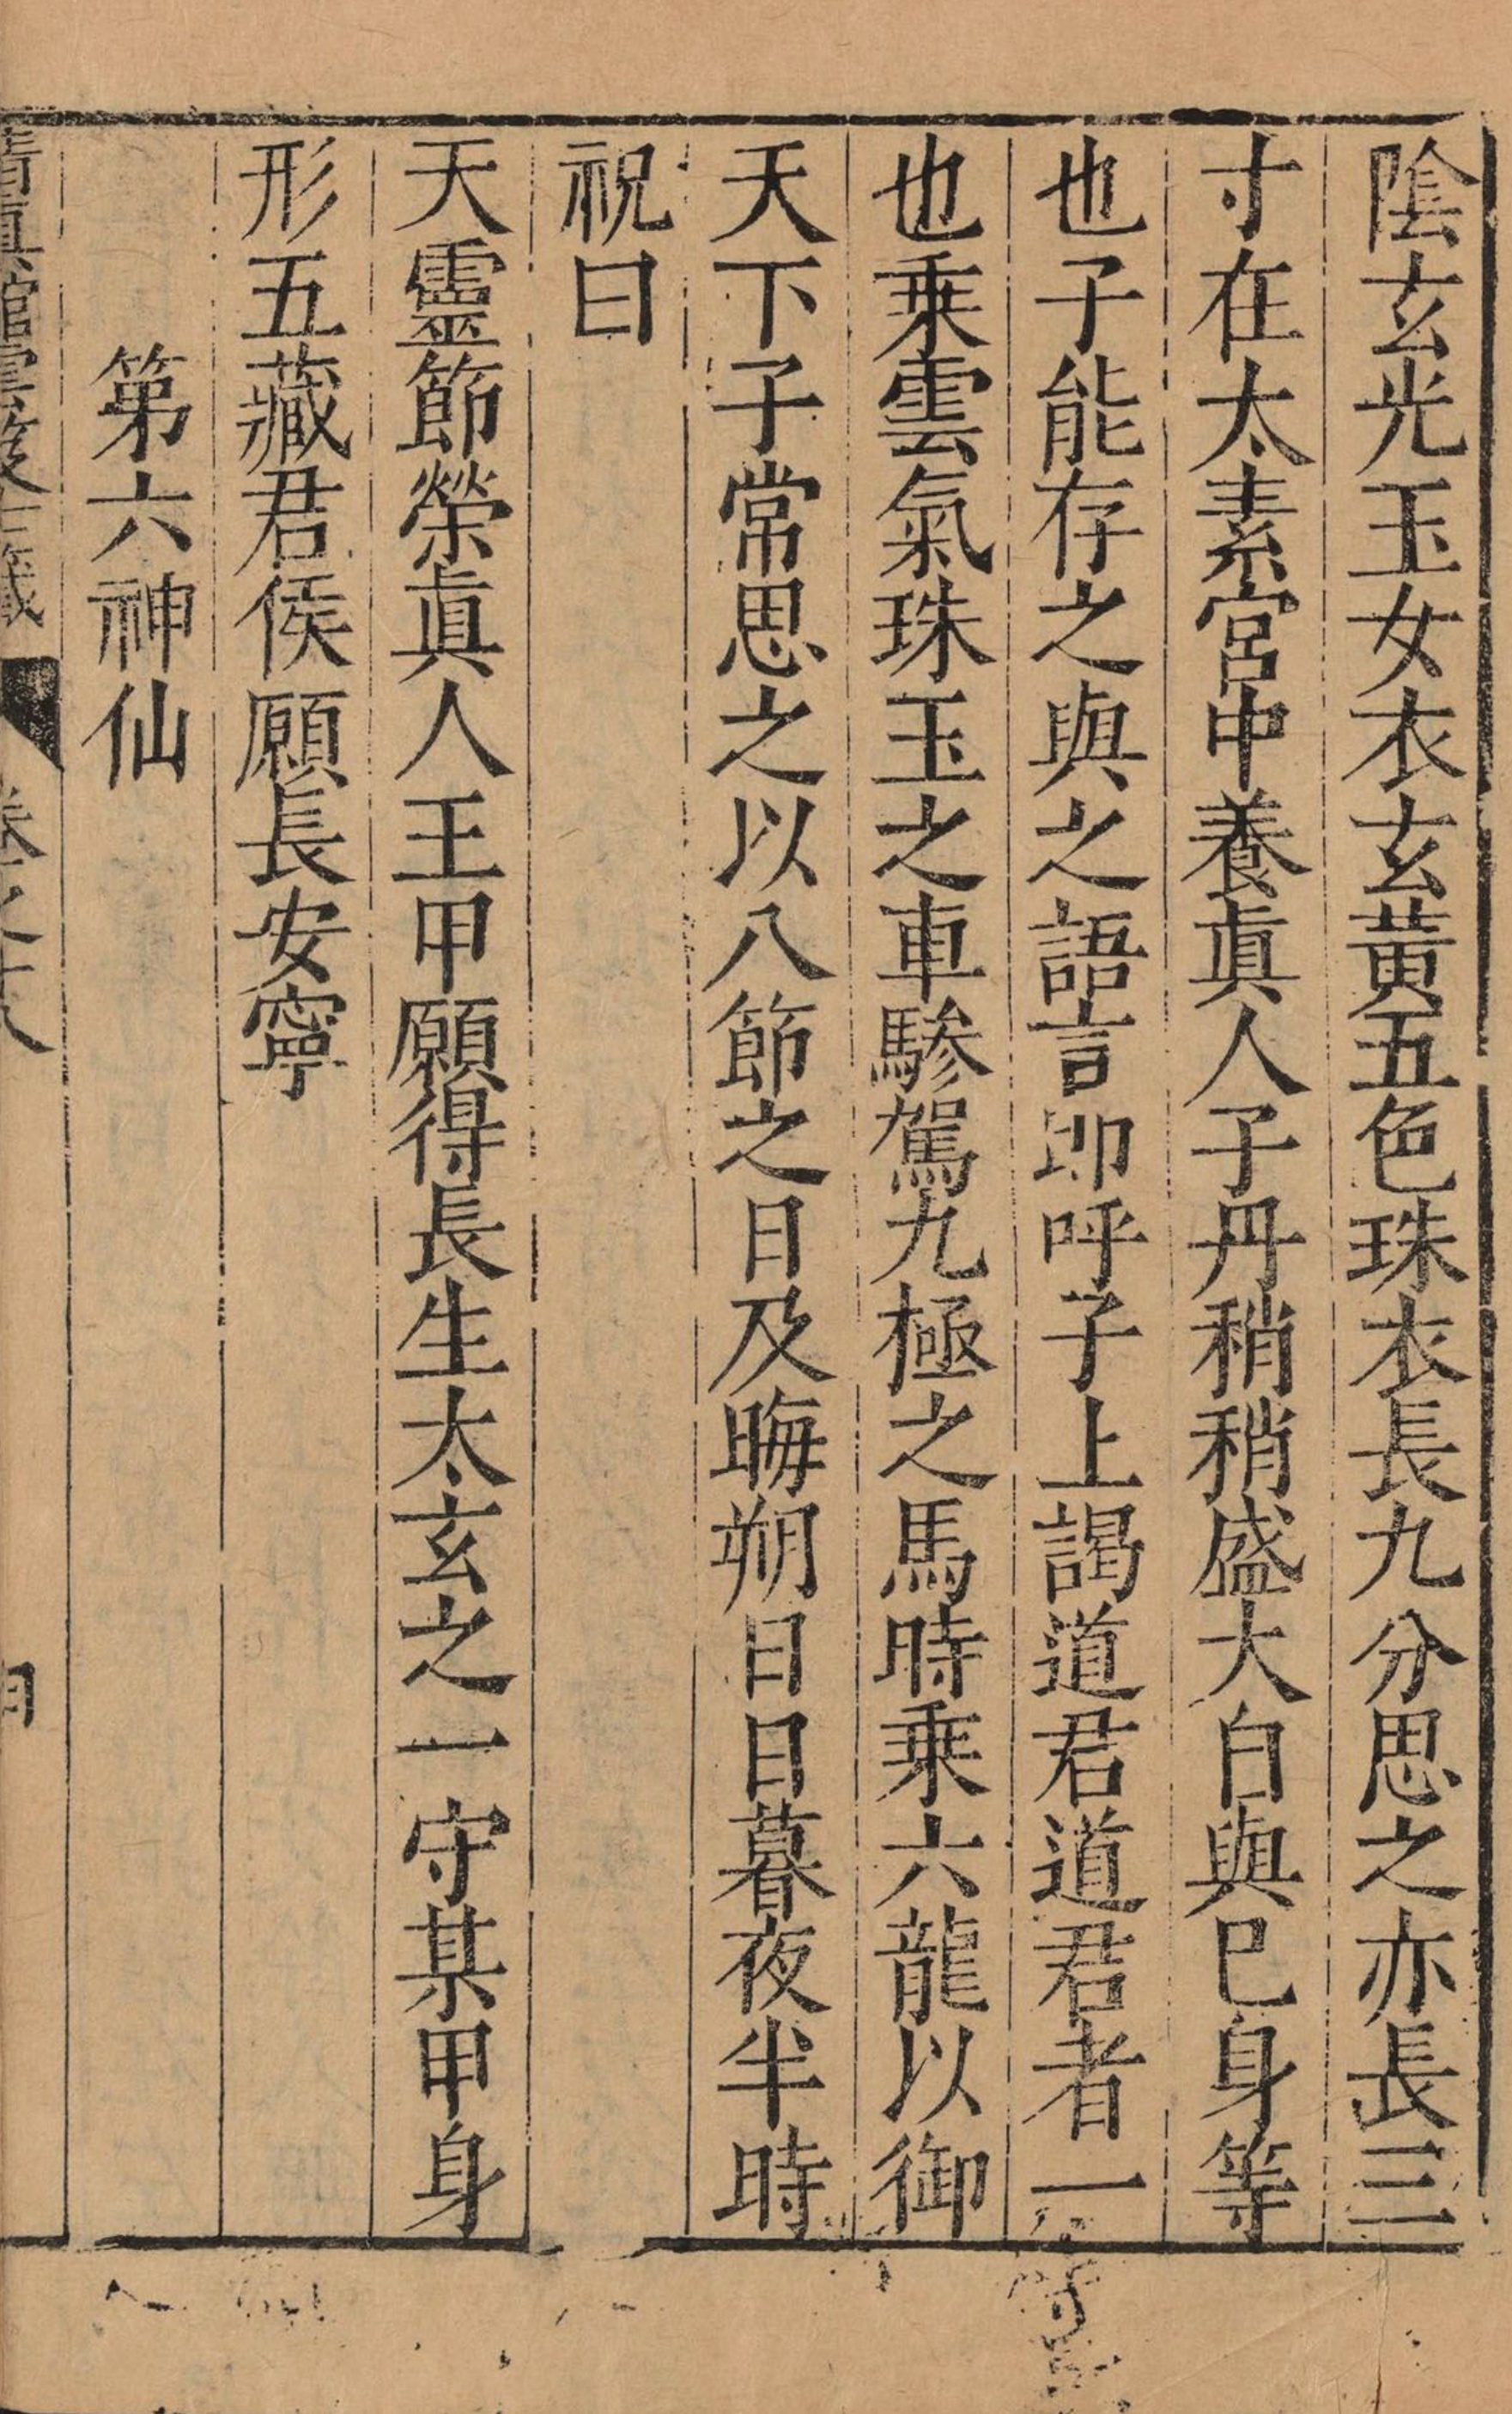 陰玄光玉女衣玄黃五色珠衣長九分思之亦長三
寸在太素宮中養眞人子丹稍稍盛大自與巳身等
也子能存之與之語言卽呼子上謁道君道君者一
也乘雲氣珠玉之車驂駕九極之馬時乘六龍以御
天下子常思之以八節之日及晦朔日日暮夜半時
祝曰
天靈節榮眞人王甲願得長生太玄之一守某甲身
形五藏君侯願長安寧
第六神仙
清眞館雲笈七籤 卷之十八